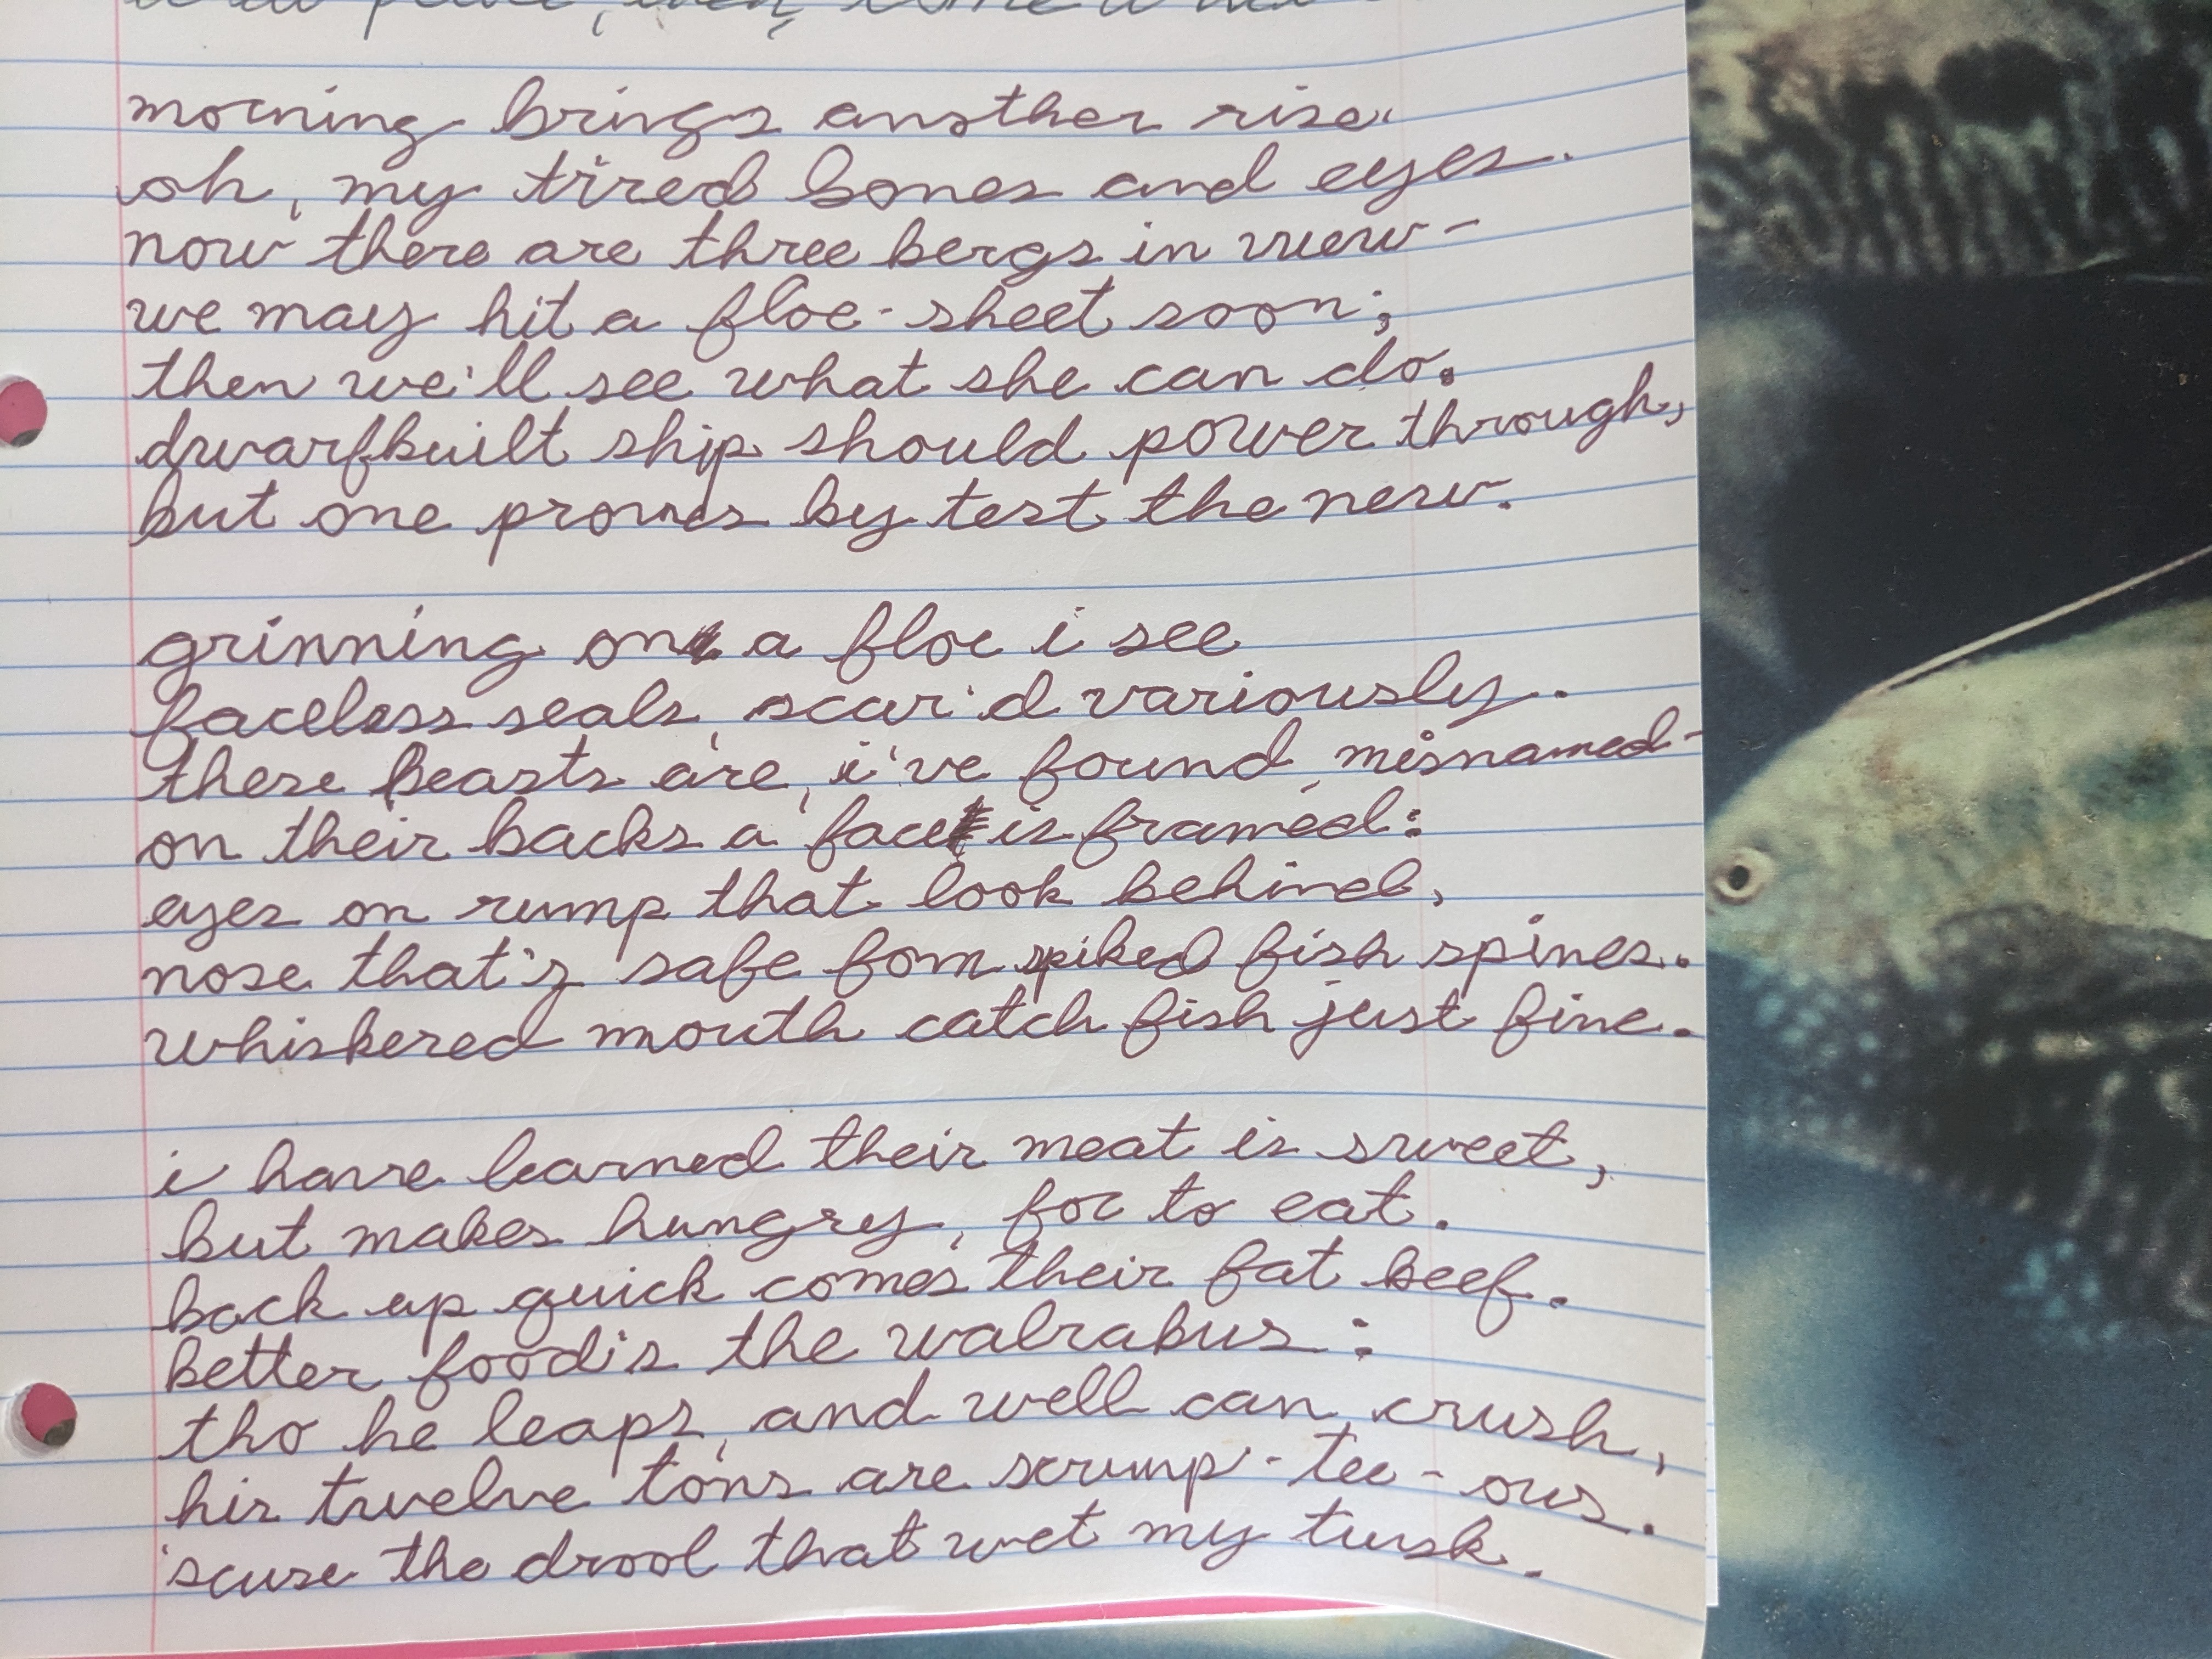 morning brings another rise.
oh, my tired bones and eyes.
now there are three bergs in view-
we may hit a floe-sheet soon;
then we'll see what she can do.
dwarfbuilt ship should power through,
but one proves by test the new.
grinning on a floe i see
faceless seals, scar'd variously.
these beasts are, i've found, misnamed-
on their backs a face is framed:
eyes on rump that look behind,
nose that's safe fom spiked fish spines.
whiskered mouth catch fish just fine.
i have learned their meat is sweet,
but makes hungry, for to eat.
back up quick comes their fat beef.
better food's the walrabus:
tho he leaps, and well can crush,
his twelve tons are scrump-tee-ous.
'scuse the drool that wet my tusk.